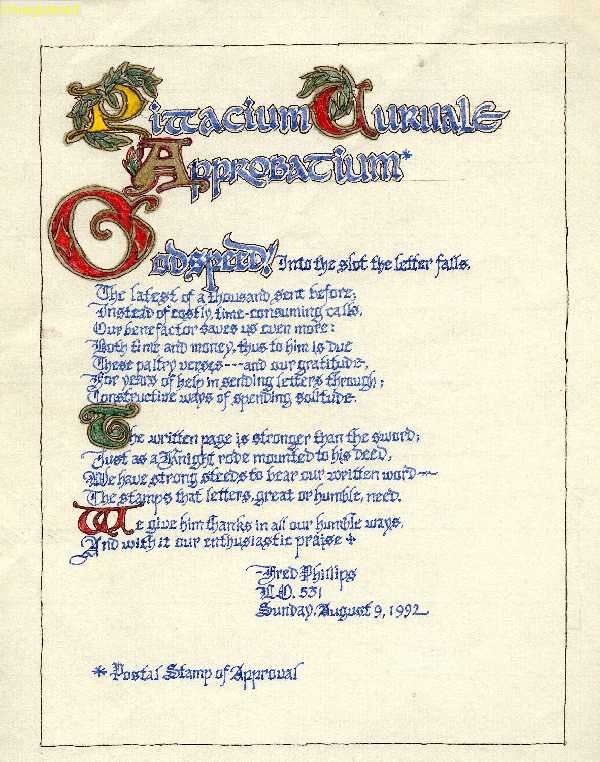 Unregistered
Pittacium Curuale
Approbatium*
Godspeed! Into the slot the letter falls,
The latest of a thousand sent before;
Instead of costly, time-consuming calls,
Our benefactor saves us even more:
Both time and money, thus to him is due
These paltry verses---and our gratitude,
For years of help in sending letters through;
Constructive ways of spending solitude.
The written page is stronger than the sword;
Just as a Knight rode mounted to his deed,
We have strong steeds to bear our written word—
The stamps that letters, great or humble, need.
We give him thanks in all our humble ways,
And with it our enthusiastic praise +
-Fred Phillips
L.O. 531
Sunday, August 9, 1992
* Postal Stamp of Approval